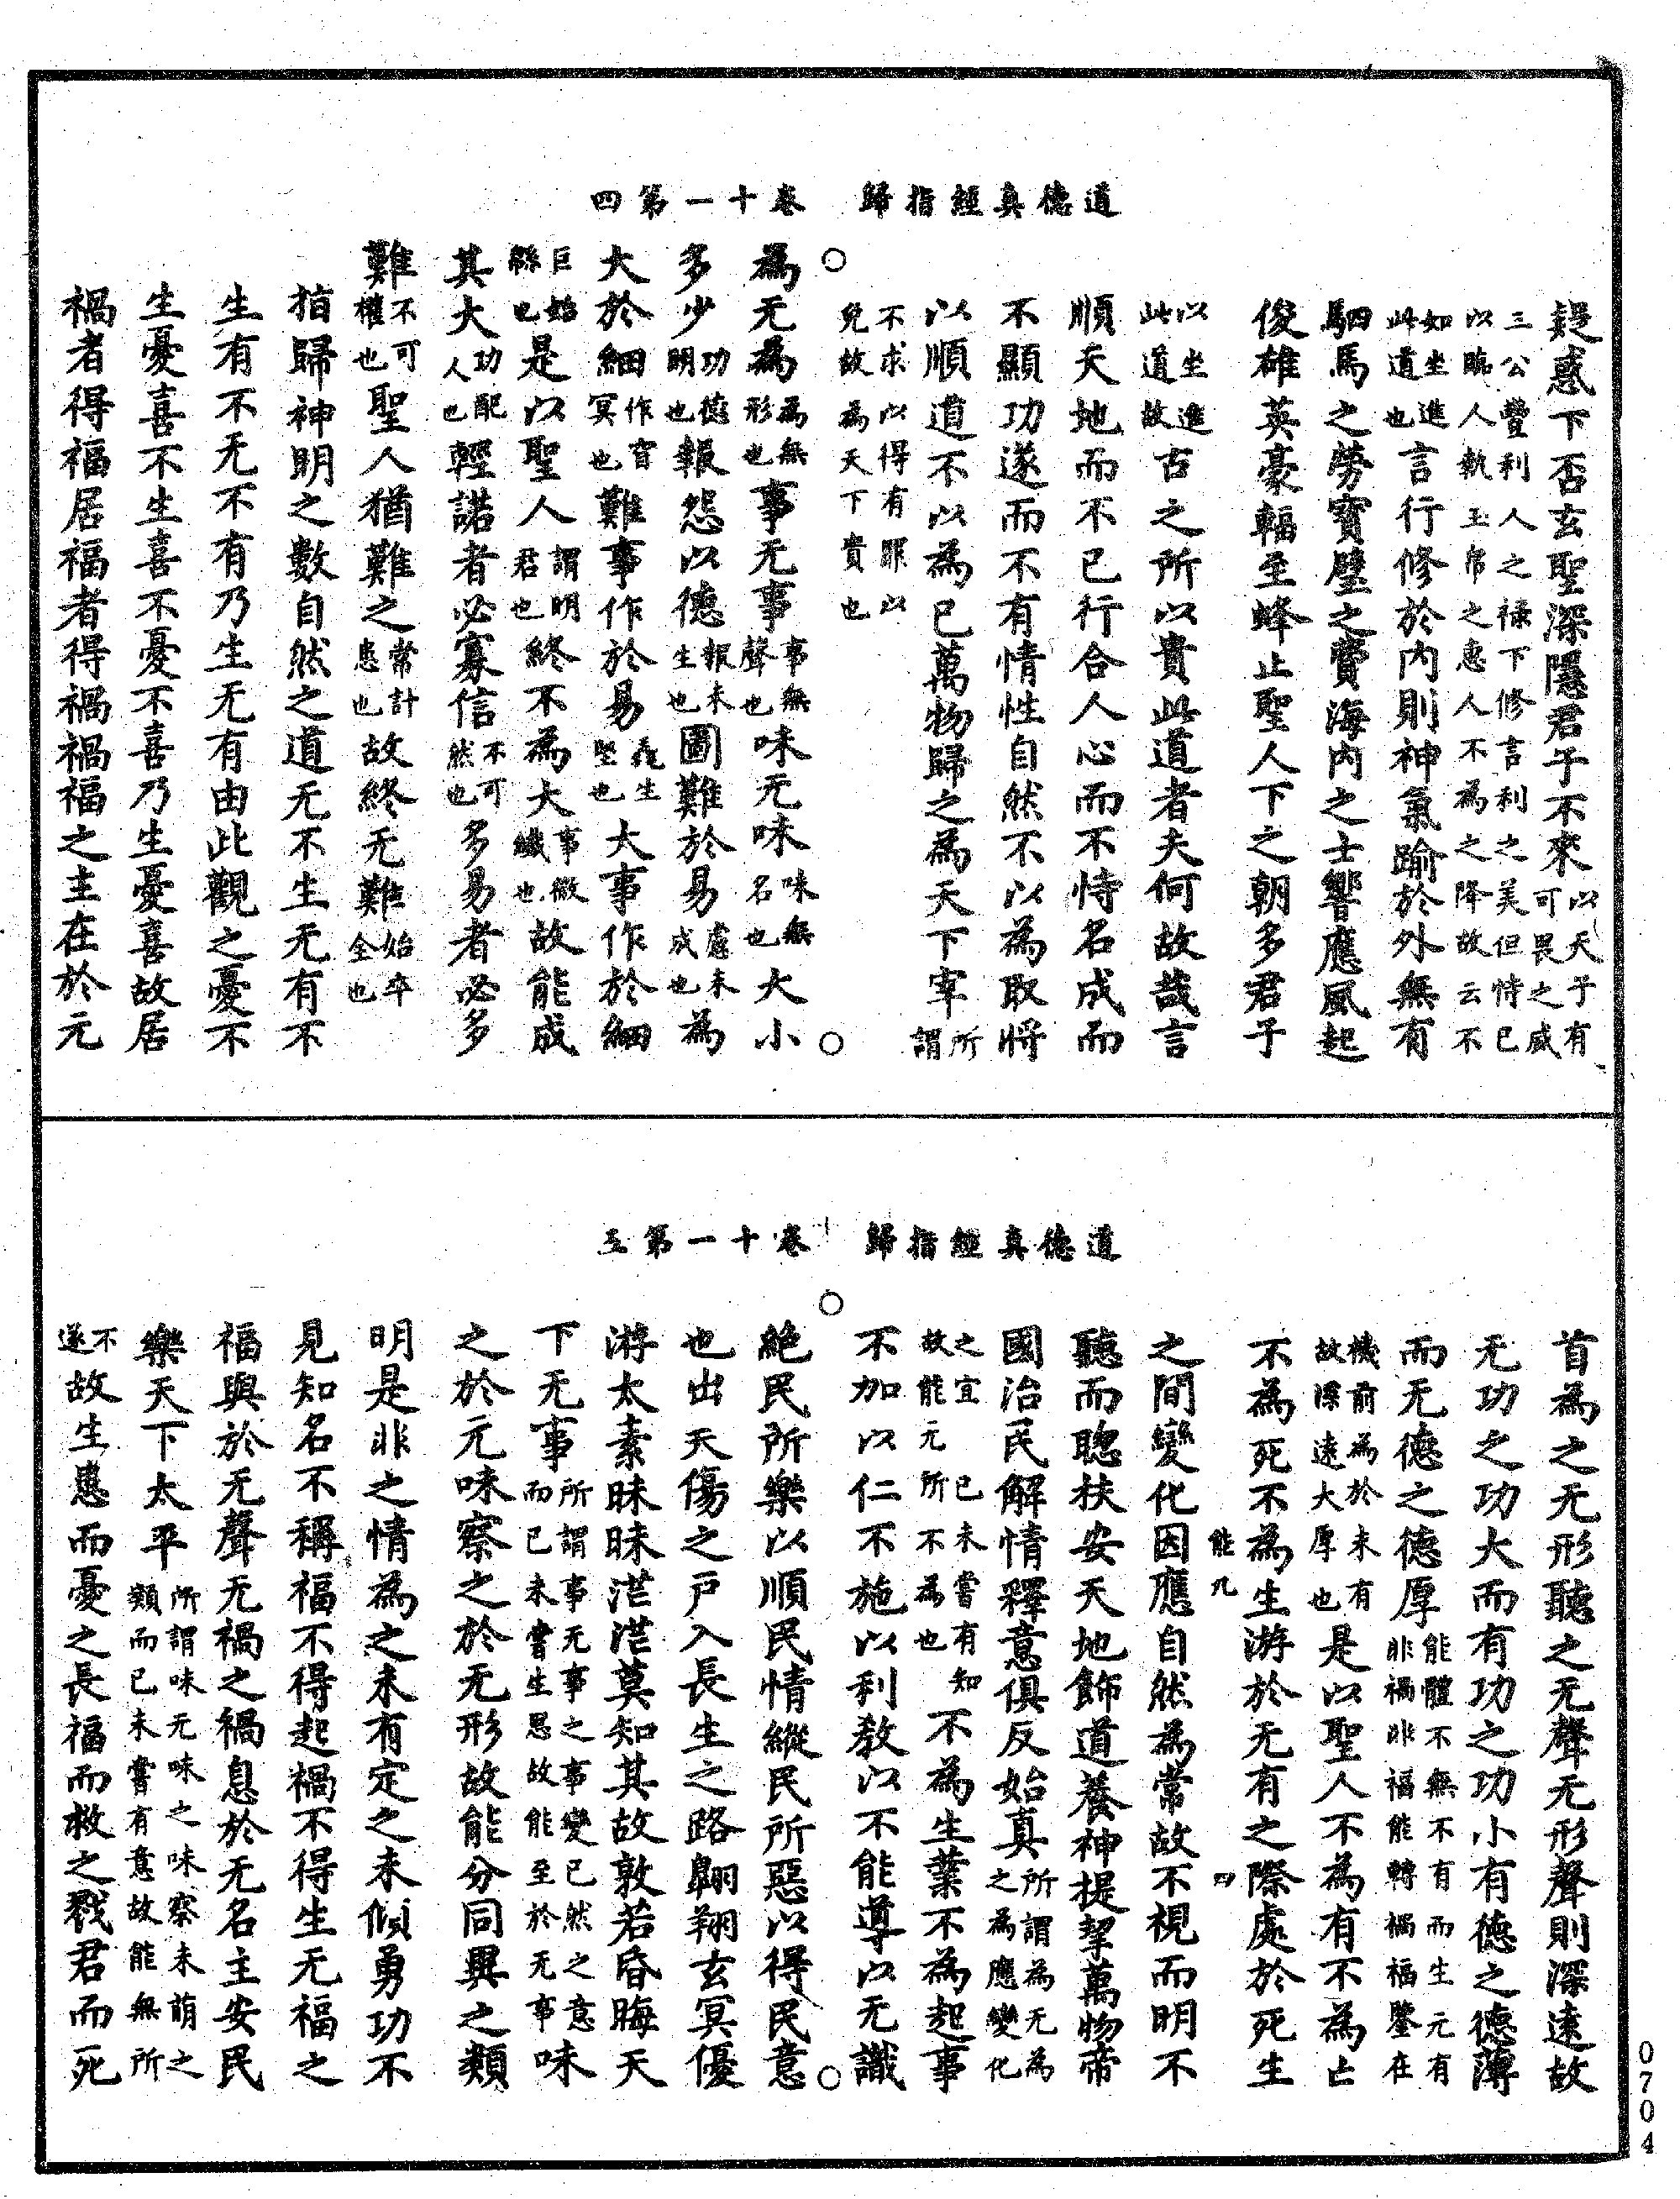 道德真經指歸　卷十一第四
疑惑下否玄聖深隱君子不來以天子有可畏之威
三公豐利人之祿下修言利之美但恃已以臨人執玉帛之惠人不為之降故云不
如坐進此道也言行修於內則神氣踰於外無有
駟馬之勞寶璧之費海內之士響應風起
俊雄英豪輻至蜂止聖人下之朝多君子
以坐進此道故古之所以貴此道者夫何故哉言
順天地而不已行合人心而不恃名成而
不顯功遂而不有情性自然不以為取將
以順道不以為已萬物歸之為天下宰所謂
不求以得有罪以免故為天下貴也
為无為為無形也事无事事無聲也味无味味無名也大小
多少功德明也報怨以德報未生也圖難於易慮未成也為
大於細作窅冥也難事作於易產生堅也大事作於細
巨始緜始也是以聖人謂明君也終不為大事微纖也故能成
其大功配人也輕諾者必寡信不可然也多易者必多
難不可權也聖人猶難之常計患也故終无難始卒全也
指歸神明之數自然之道无不生无有不
生有不无不有乃生无有由此觀之憂不
生憂喜不生喜不憂不喜乃生憂喜故居
禍者得福居福者得禍禍福之主在於元
道德真經指歸　卷十一第五
首為之无形聽之无聲无形聲則深遠故
无功之功大而有功之功小有德之德薄
而无德之德厚能體不無不有而生元有非禍非福能轉禍福鑒在
機前為於未有故深遠大厚也是以聖人不為有不為亡
不為死不為生游於无有之際處於死生
之間變化因應自然為常故不視而明不
聽而聰扶安天地飾道養神提挈萬物帝
國治民解情釋意俱反始真所謂為无為之為應變化
之宜已未嘗有知故能元所不為也不為生業不為起事
不加以仁不施以利教以不能導以无識
絶民所樂以順民情縱民所惡以得民意
也出天傷之戸入長生之路翺翔玄冥優
游太素昧昧茫茫莫知其故敦若昏晦天
下无事所謂事无事之事變已然之意而已未嘗生思故能至於无事味
之於元味察之於无形故能分同異之類
明是非之情為之未有定之未傾勇功不
見知名不稱福不得起禍不得生无福之
福與於无聲无禍之禍息於无名主安民
樂天下太平所謂味无味之味察未萌之類而已未嘗有意故能無所
不遂故生患而憂之長福而救之戮君而死
0704